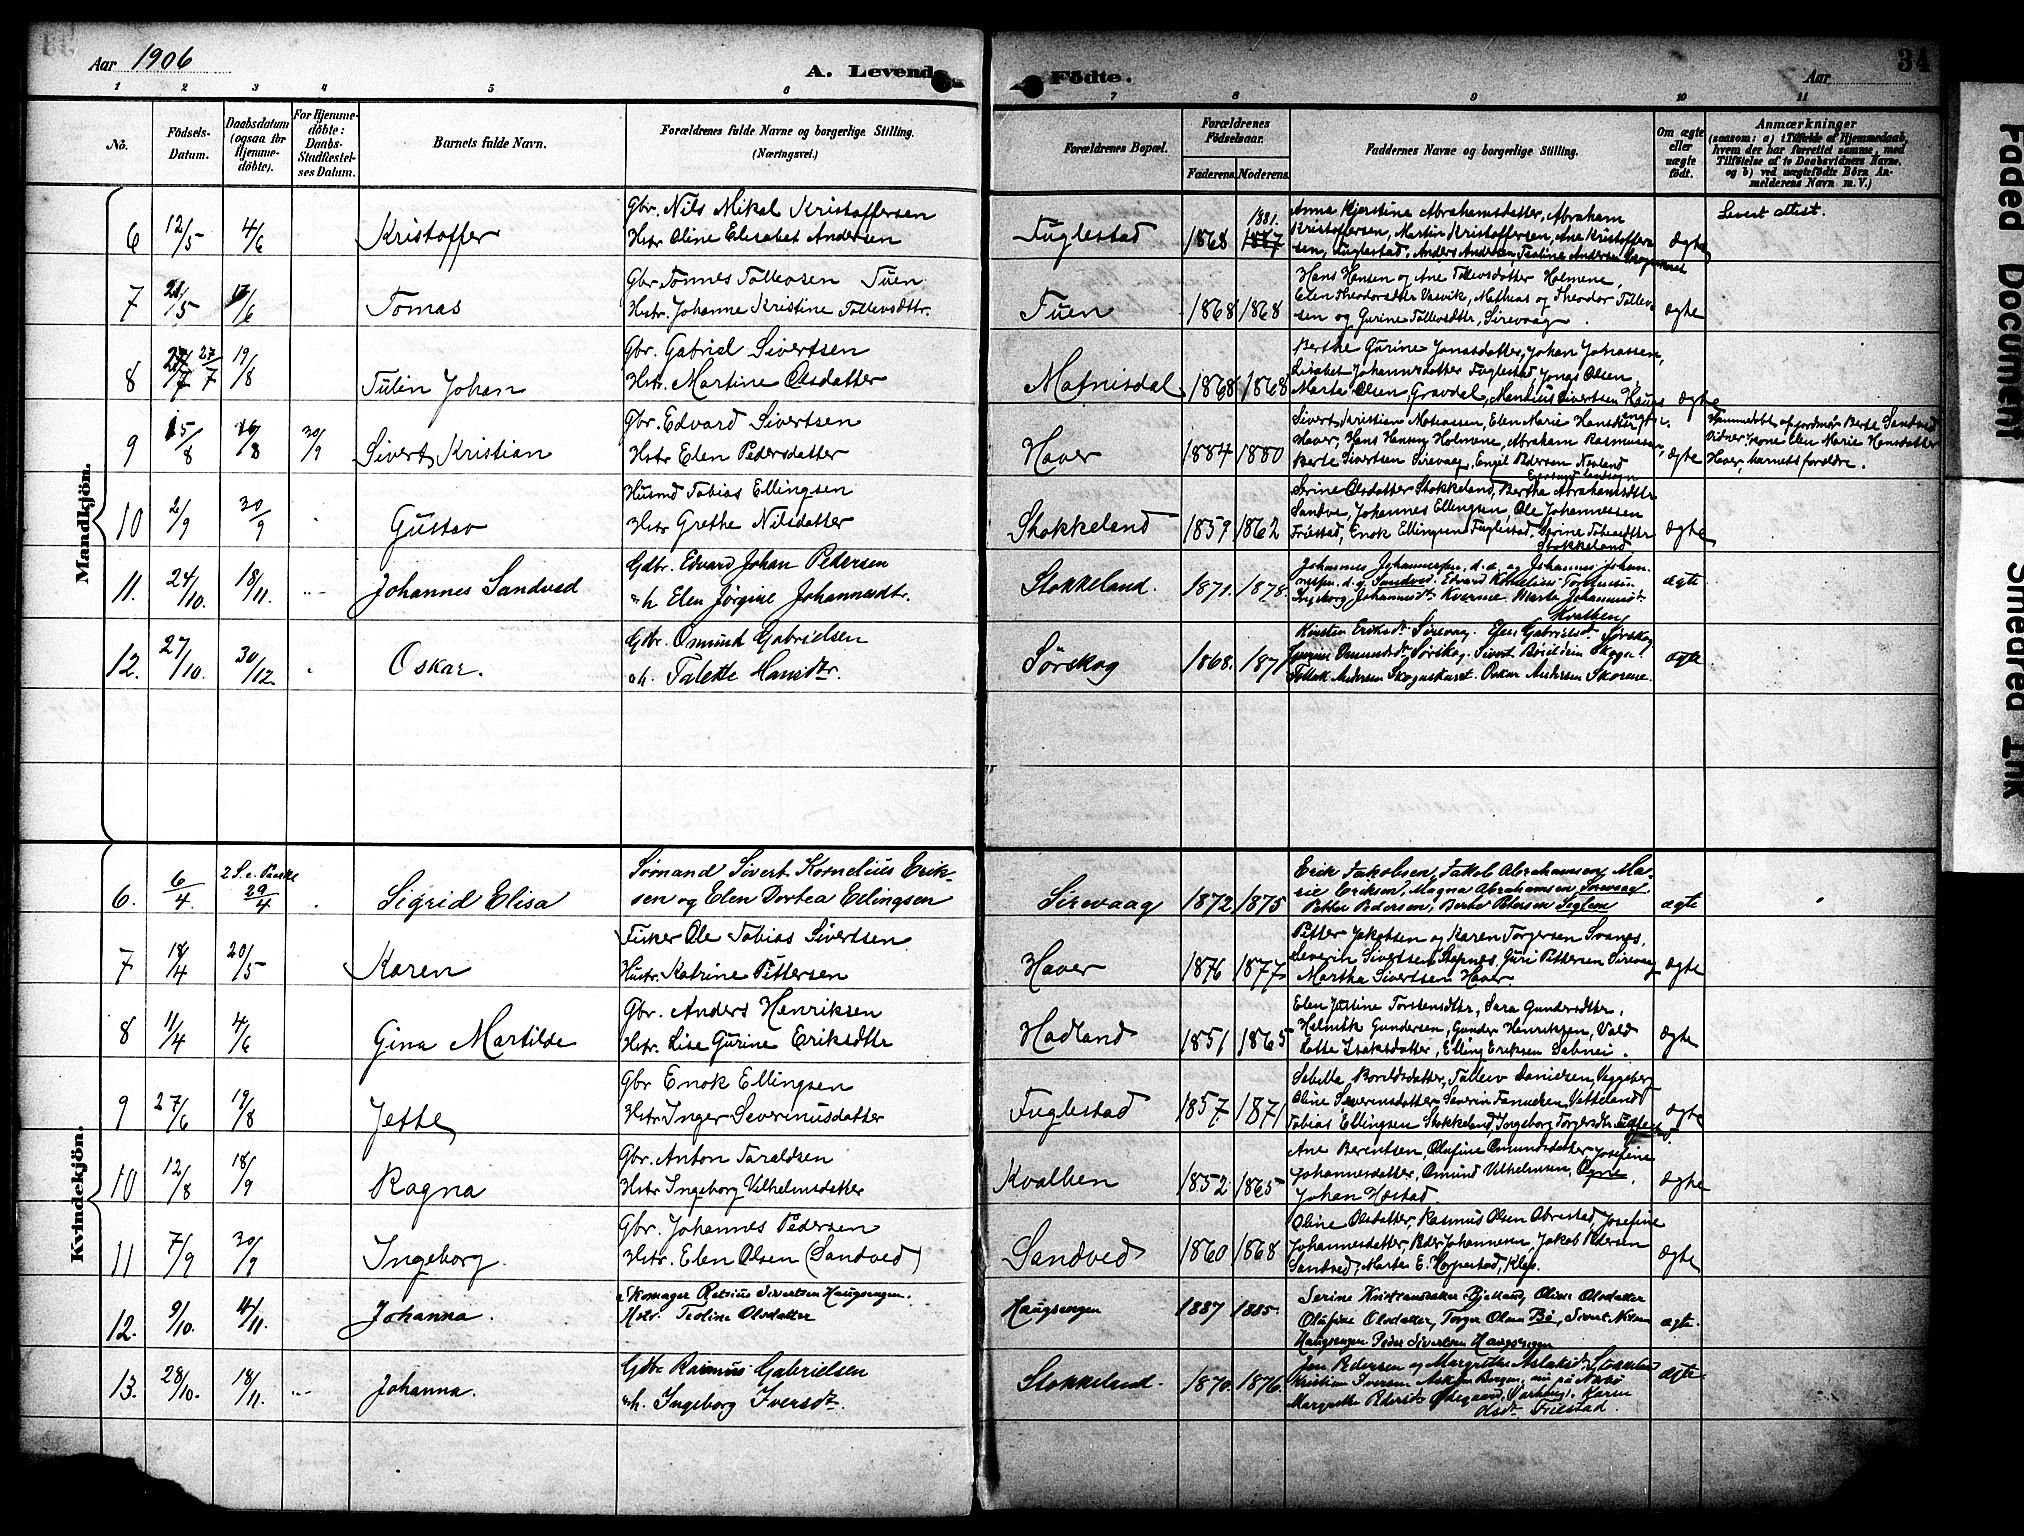 Aar 1906
A. Levende
Fødte.
Aar
34
1 2 3 4 5 6 7 8 9 10 11
No.
Födsels-
Datum.
Daabsdatum
(ogsaa for
Hjemme-
döbte).
For Hjemme-
döbte:
Daabs-
Stadfæstel-
ses Datum.
Barnets fulde Navn.
Forældrenes fulde Navne og borgerlige Stilling.
(Næringsvei.)
Forældrenes Bopæl.
Forældrenes
Födselsaar.
Faderens. Moderens.
Faddernes Navne og borgerlige Stilling.
Om ægte
eller
uægte
födt.
Anmærkninger
(saasom: a) i Tilfælde af Hjemmedaab,
hvem der har forrettet samme, med
Tilföielse af to Daabsvidners Navne,
og b) ved uægtefödte Börn An-
melderens Navn m. V.)
Mandkjön.
6 12/5 4/6 Kristoffer
Gbr. Nils Mikal Kristoffersen
Hstr. Oline Elisabet Andersen
Fuglestad 1868 1881. 1887
Anna Kjerstine Abrahamsdatter, Abraham
Kristoffersen, Martin Kristoffersen, Ane Kristoffer-
sen, Fuglestad, Anders Andersen, Taaline Andersen
ægte
Levert attest.
7 21/5 17/6 Tomas
Gbr. Tønnes Tollevsen Tuen
Hstr. Johanne Kristine Tollevsdttr.
Tuen 1868 1868
Hans Hansen og Ane Tollevsdatter Holmene,
Elen Theodorsdtter Vasvik, Mathias og Theodor Tollev-
sen og Gurine Tollevsdttr, Sirevaag.
ægte
8 27/7 19/8 Tulin Johan
Gbr. Gabriel Sivertsen
Hstr. Martine Olsdatter
Matnisdal 1868 1868
Berthe Gurine Jonasdatter, Johan Johnassen,
Lisabet Johannesdatter Fuglestad, Jonas Olsen,
Marta Olsen Gravdal, Mentius Sivertsen Haugs-
engen.
ægte
9 15/8 16/8 30/9 Sivert Kristian
Gbr. Edvard Sivertsen
Hstr Elen Pedersdatter
Haver 1884 1880
Sivert Kristian Mateassen, Elen Marie Hansdtr
Haver, Hans Hansen Holmene, Abraham Rasmussen,
Berte Sivertsen Sirevaag, Engel Pedersen Nesland
ægte
Hjemmedøbt af jordmor Berte Sandved
Vidner: kone Elen Marie Hansdatter
Haver, barnets forældre.
10 2/9 30/9 Gustav
Husmd Tobias Ellingsen
Hstr Grethe Nilsdatter
Stokkeland 1859 1862
Serine Olsdatter Stokkeland, Bertha Abrahamsdttr
Sandve, Johannes Ellingsen, Ole Johannessen
Friestad, Enok Ellingsen Fuglestad, Serine Tobiasdttr
Stokkeland
ægte
11. 24/10. 18/11. Johannes Sandved
Gdbr. Edvard Johan Pedersen
h. Elen Jørgine Johannesdtr.
Stokkeland. 1871. 1878.
Johannes Johannessen, d. æ. og Johannes Johan-
nessen, d. y. Sandved. Edvard Kornelius
Ingeborg Johannesdtr Kvarme. Marte Johannesdtr
Kvalben
ægte
12. 27/10. 30/12. Oskar.
Gdbr. Omund Gabrielsen
h. Talette Hansdtr.
Sørskog 1868. 1871
Kirsten Eriksdtr Sirevaag. Efen Gabrielsdtr Sørskog
Gurine Omundsdtr Sørskog. Sivert
Tollak Andersen Skogaskaret. Oskar Andersen Skorene.
ægte
Kvindekjön.
6. 6/4. 2 S. e. Paaske 29/4 Sigrid Elisa
Sømand Sivert Kornelius Erik-
sen og Elen Dortea Ellingsen
Sirevaag 1872 1875
Erik Jakobsen, Jakob Abrahamsen, Ma-
rie Eriksen, Magna Abrahamsen Sirevaag
Petter Pedersen, Berte Petersen Soglem
ægte
7 18/4 20/5 Karen
Fisker Ole Tobias Sivertsen
Hustr. Katrine Pittersen
Haver 1876 1877
Pitter Jakobsen og Karen Torgersen Svanes,
Severin Sivertsen Stapnes, Guri Pittersen Sirevaag
Martha Sivertsen Haver.
ægte
8 11/4 4/6 Gina Martilde
Gbr. Anders Henriksen
Hstr. Lise Gurine Eriksdttr
Hadland 1851 1865
Elen Justine Torstensdtter, Sara Gundersdtter,
Helmik Gundersen, Gunder Henriksen, Vald
Lotte Isaksdatter, Elling Eriksen Salmei.
ægte
9 27/6 19/8 Jette
Gbr Enok Ellingsen
Hstr Inger Severinusdatter
Fuglestad 1857 1871
Sabille Bordldsdatter, Tallev Danielsen, Veggeberg
Oline Severinsdatter, Severin Tønnesen, Jetteland
Tobias Ellingsen Stokkeland, Ingeborg Torgersdtr Fuglestad.
ægte
10 12/8 18/9 Ragna
Gbr. Anton Taraldsen
Hstr Ingeborg Vilhelmsdatter
Kvalben 1852 1865
Ane Berentsen, Olufine Omundsdatter, Josefine
Johannesdatter, Omund Vilhelmsen, Ogne,
Johan Høstad.
ægte
11 7/9 30/9 Ingeborg.
Gbr. Johannes Pedersen
Hstr. Elen Olsen (Sandved)
Sandved 1860 1868
Oline Olsdatter, Rasmus Olsen Obrestad, Josefine
Johannesdatter, Peder Johannesen, Jakob Pedersen
Sandved, Marta E. Hoppestad, Klep.
ægte
12. 9/10. 4/11. Johanna.
Skomager Retsius Sivertsen Haugsengen.
Hstr. Teoline Olsdatter
Haugsengen 1887 1885.
Serine Kristiansdatter Bjelland, Oline Olsdatter
Olufine Olsdatter, Torger Olsen Bø, Sivert Nilsen
Haugsengen. Peder Sivertsen Haugsengen
ægte.
13. 28/10. 18/11. Johanna.
Gdbr Rasmus Gabrielsen
h. Ingeborg Iversdtr.
Stokkeland. 1870. 1876.
Jon Pedersen og Margrethe Aslaksdtr Stokkeland
Kristian Iversen Askjem Bryne, nu paa Nærbø
Margrethe Pedersdtr Ødegaard, Varhaug. Karen
Olsdtr Friestad.
ægte.
Faded Document
Smeared Ink